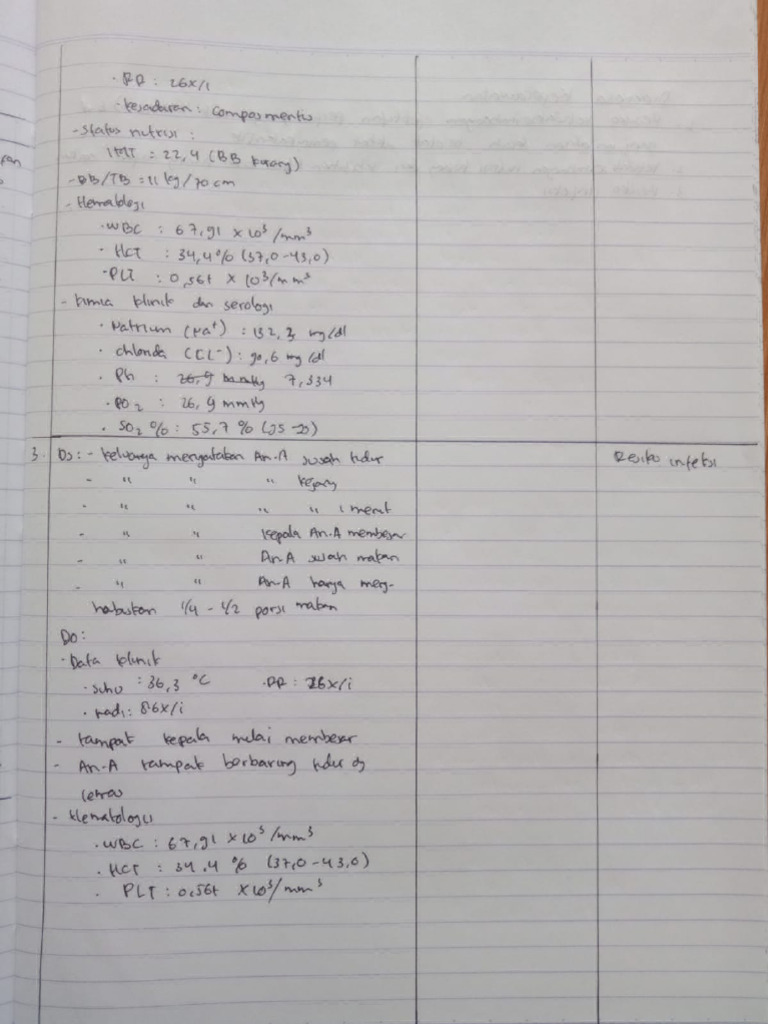 · RR : 26x/i
· Kesadaran : Composmentis
- Status nutrisi :
IMT = 22,4 (BB kurang)
- BB/TB = 11 kg/70 cm
- Hematologi
· WBC : 67,91 x 10³ /mm³
· HCT : 34,4 % (37,0-43,0)
· PLT : 0,567 x 10³/mm³
- Kimia klinik dan serologi
· Natrium (Na⁺) : 132,3 mg/dl
· Chlorida (CL⁻) : 90,6 mg/dl
· PH : 7,334
· PO₂ : 26,9 mmHg
· SO₂ % : 55,7 %
3. Ds : - Keluarga mengatakan An.A susah tidur
- " " " kejang
- " " " " 1 menit
- " " Kepala An.A membesar
- " " An-A susah makan
- " " An-A hanya meng-
habiskan 1/4 - 1/2 porsi makan
Resiko infeksi
Do :
- Data klinik
· Suhu : 36,3 °C · RR : 26x/i
· nadi : 86x/i
- tampak kepala mulai membesar
- An-A tampak berbaring tidur dg
lemas
- Hematologi
· WBC : 67,91 x 10³ /mm³
· HCT : 34,4 % (37,0-43,0)
· PLT : 0,567 x 10³/mm³